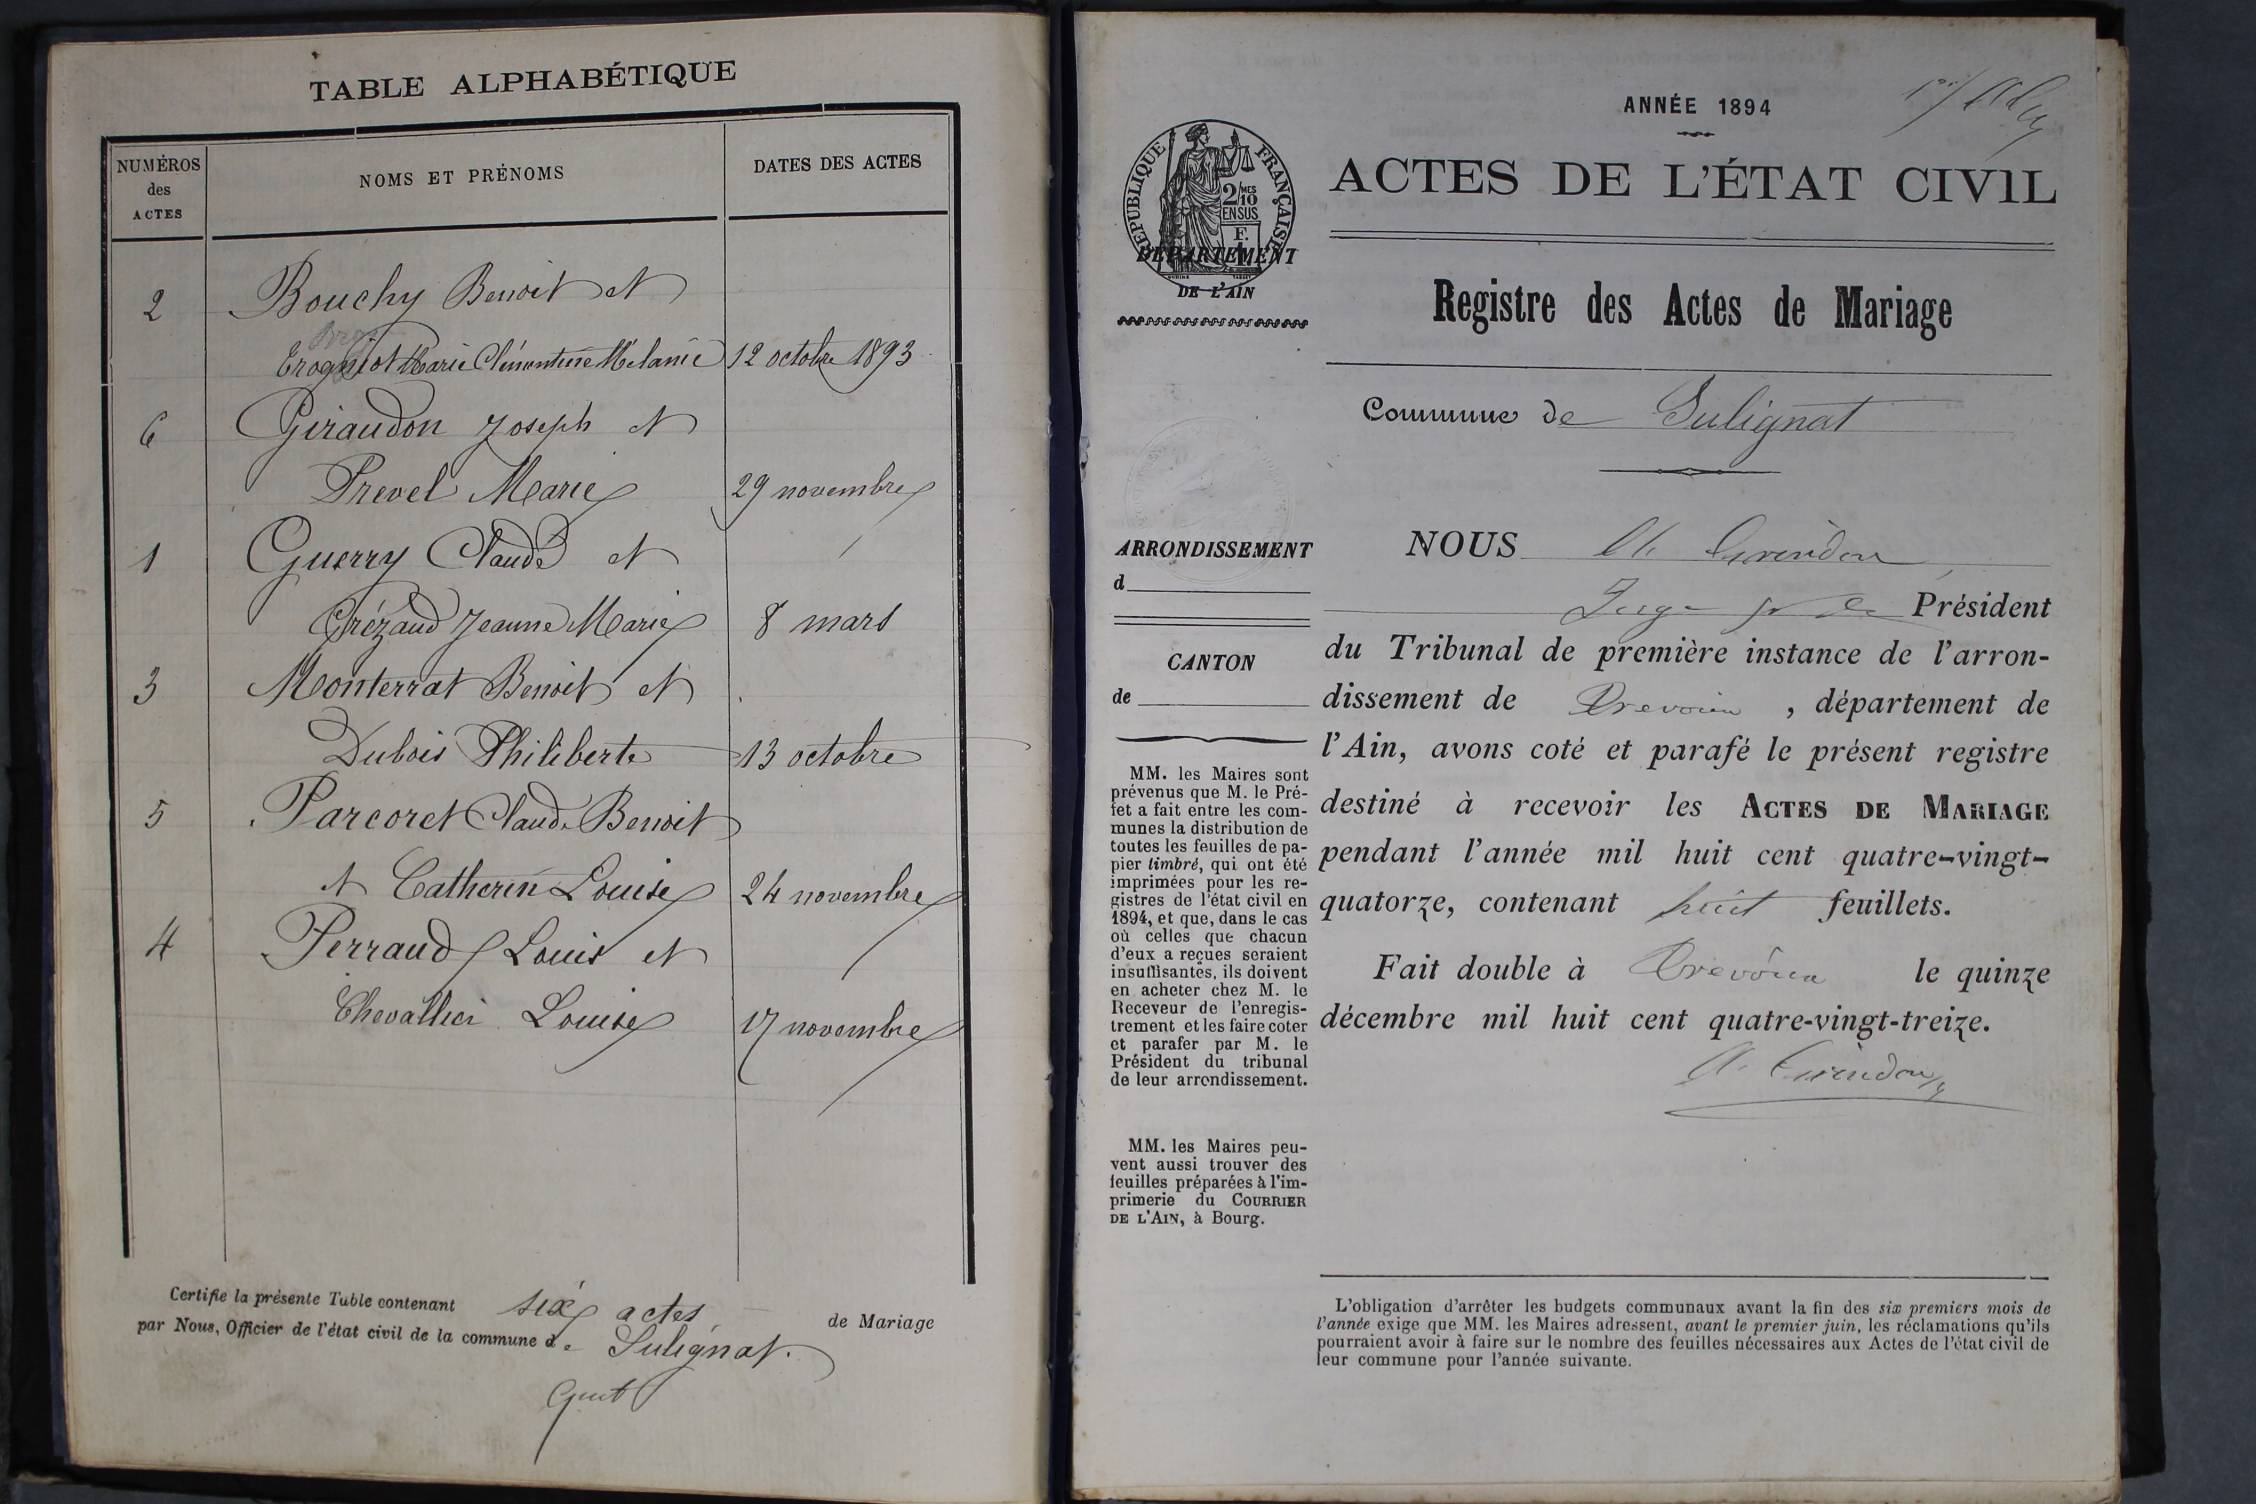 TABLE ALPHABÉTIQUE
NUMÉROS
des
ACTES
NOMS ET PRÉNOMS
DATES DES ACTES
2 Bouchy Benoit et
Marie Clémentine Mélanie 12 octobre 1893
6 Giraudon Joseph et
Prevel Marie 29 novembre
1 Guerry Claude et
Grézaud Jeanne Marie 8 mars
3 Monterrat Benoit et
Dubois Philiberte 13 octobre
5 Parcoret Claude Benoit
et Catherin Louise 24 novembre
4 Perraud Louis et
Chevallier Louise 17 novembre
Certifie la présente Table contenant six actes de Mariage
par Nous, Officier de l'état civil de la commune de Sulignat.
ANNÉE 1894
RÉPUBLIQUE FRANÇAISE
2/10 MES
EN SUS
F.
1
ACTES DE L'ÉTAT CIVIL
DÉPARTEMENT
DE L'AIN
Registre des Actes de Mariage
Commune de Sulignat
ARRONDISSEMENT
d
CANTON
de
MM. les Maires sont
prévenus que M. le Pré-
fet a fait entre les com-
munes la distribution de
toutes les feuilles de pa-
pier timbré, qui ont été
imprimées pour les re-
gistres de l'état civil en
1894, et que, dans le cas
où celles que chacun
d'eux a reçues seraient
insuffisantes, ils doivent
en acheter chez M. le
Receveur de l'enregis-
trement et les faire coter
et parafer par M. le
Président du tribunal
de leur arrondissement.
MM. les Maires peu-
vent aussi trouver des
feuilles préparées à l'im-
primerie du COURRIER
DE L'AIN, à Bourg.
NOUS
Juge Président
du Tribunal de première instance de l'arron-
dissement de Trevoux, département de
l'Ain, avons coté et parafé le présent registre
destiné à recevoir les ACTES DE MARIAGE
pendant l'année mil huit cent quatre-vingt-
quatorze, contenant huit feuillets.
Fait double à Trevoux le quinze
décembre mil huit cent quatre-vingt-treize.
L'obligation d'arrêter les budgets communaux avant la fin des six premiers mois de
l'année exige que MM. les Maires adressent, avant le premier juin, les réclamations qu'ils
pourraient avoir à faire sur le nombre des feuilles nécessaires aux Actes de l'état civil de
leur commune pour l'année suivante.